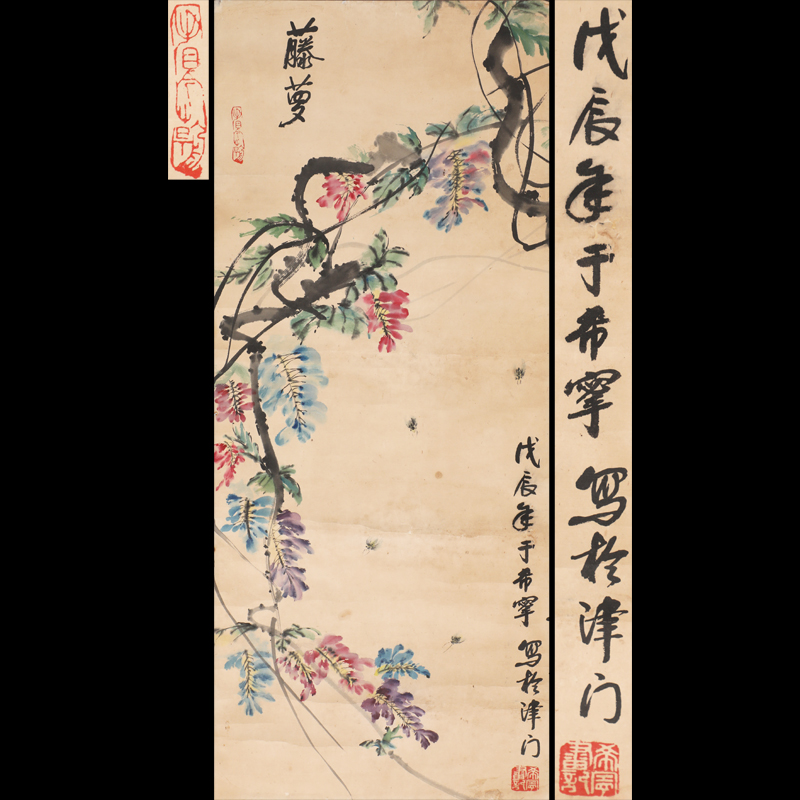 藤萝
戊辰年于希宁写于津门
戊辰年于希宁写于津门